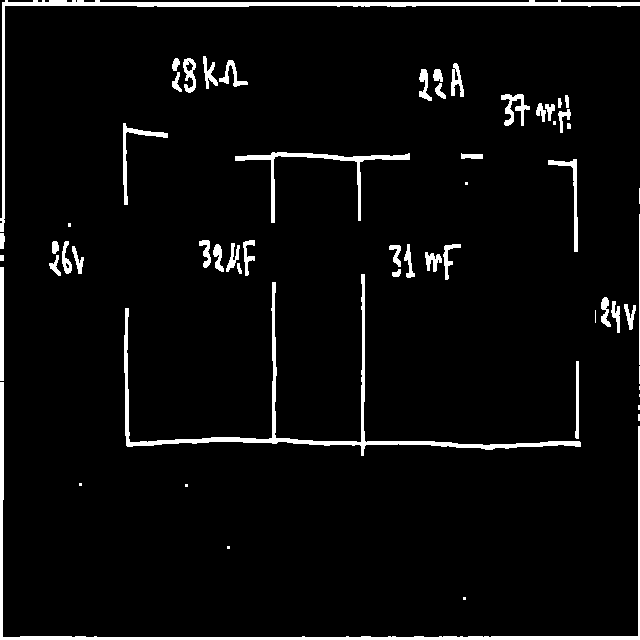 28 KΩ
22A
37 mH
26V
32µF
31 mF
24V